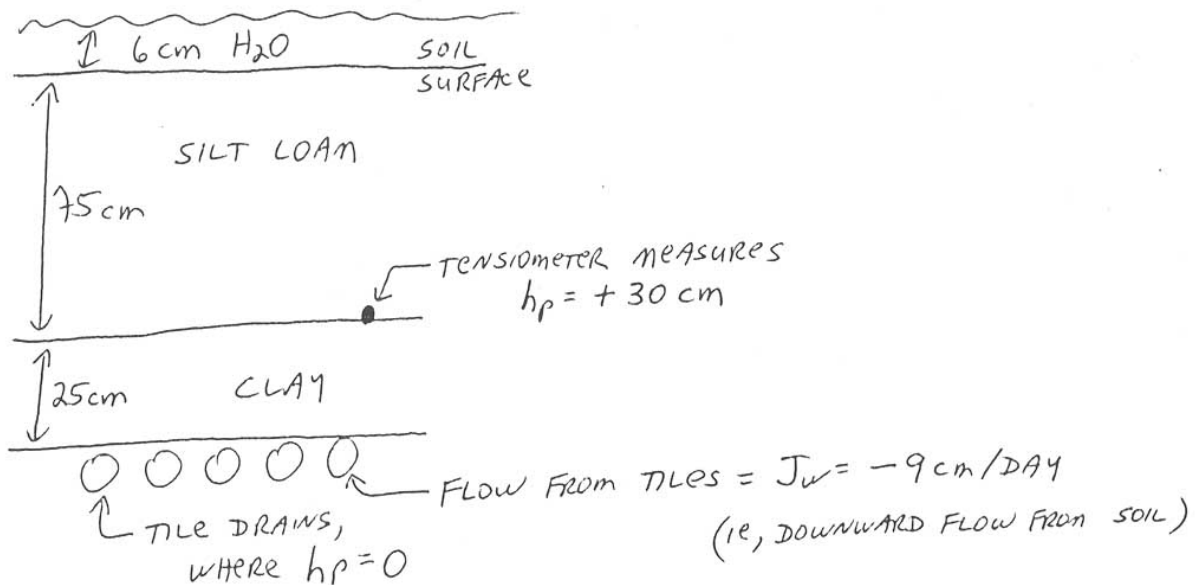 6 cm H2O
SOIL
SURFACE
SILT LOAM
75 cm
TENSIOMETER MEASURES
hp = + 30 cm
25 cm
CLAY
FLOW FROM TILES = Jw = -9 cm/DAY
(ie, DOWNWARD FLOW FROM SOIL)
TILE DRAINS,
WHERE hp = 0